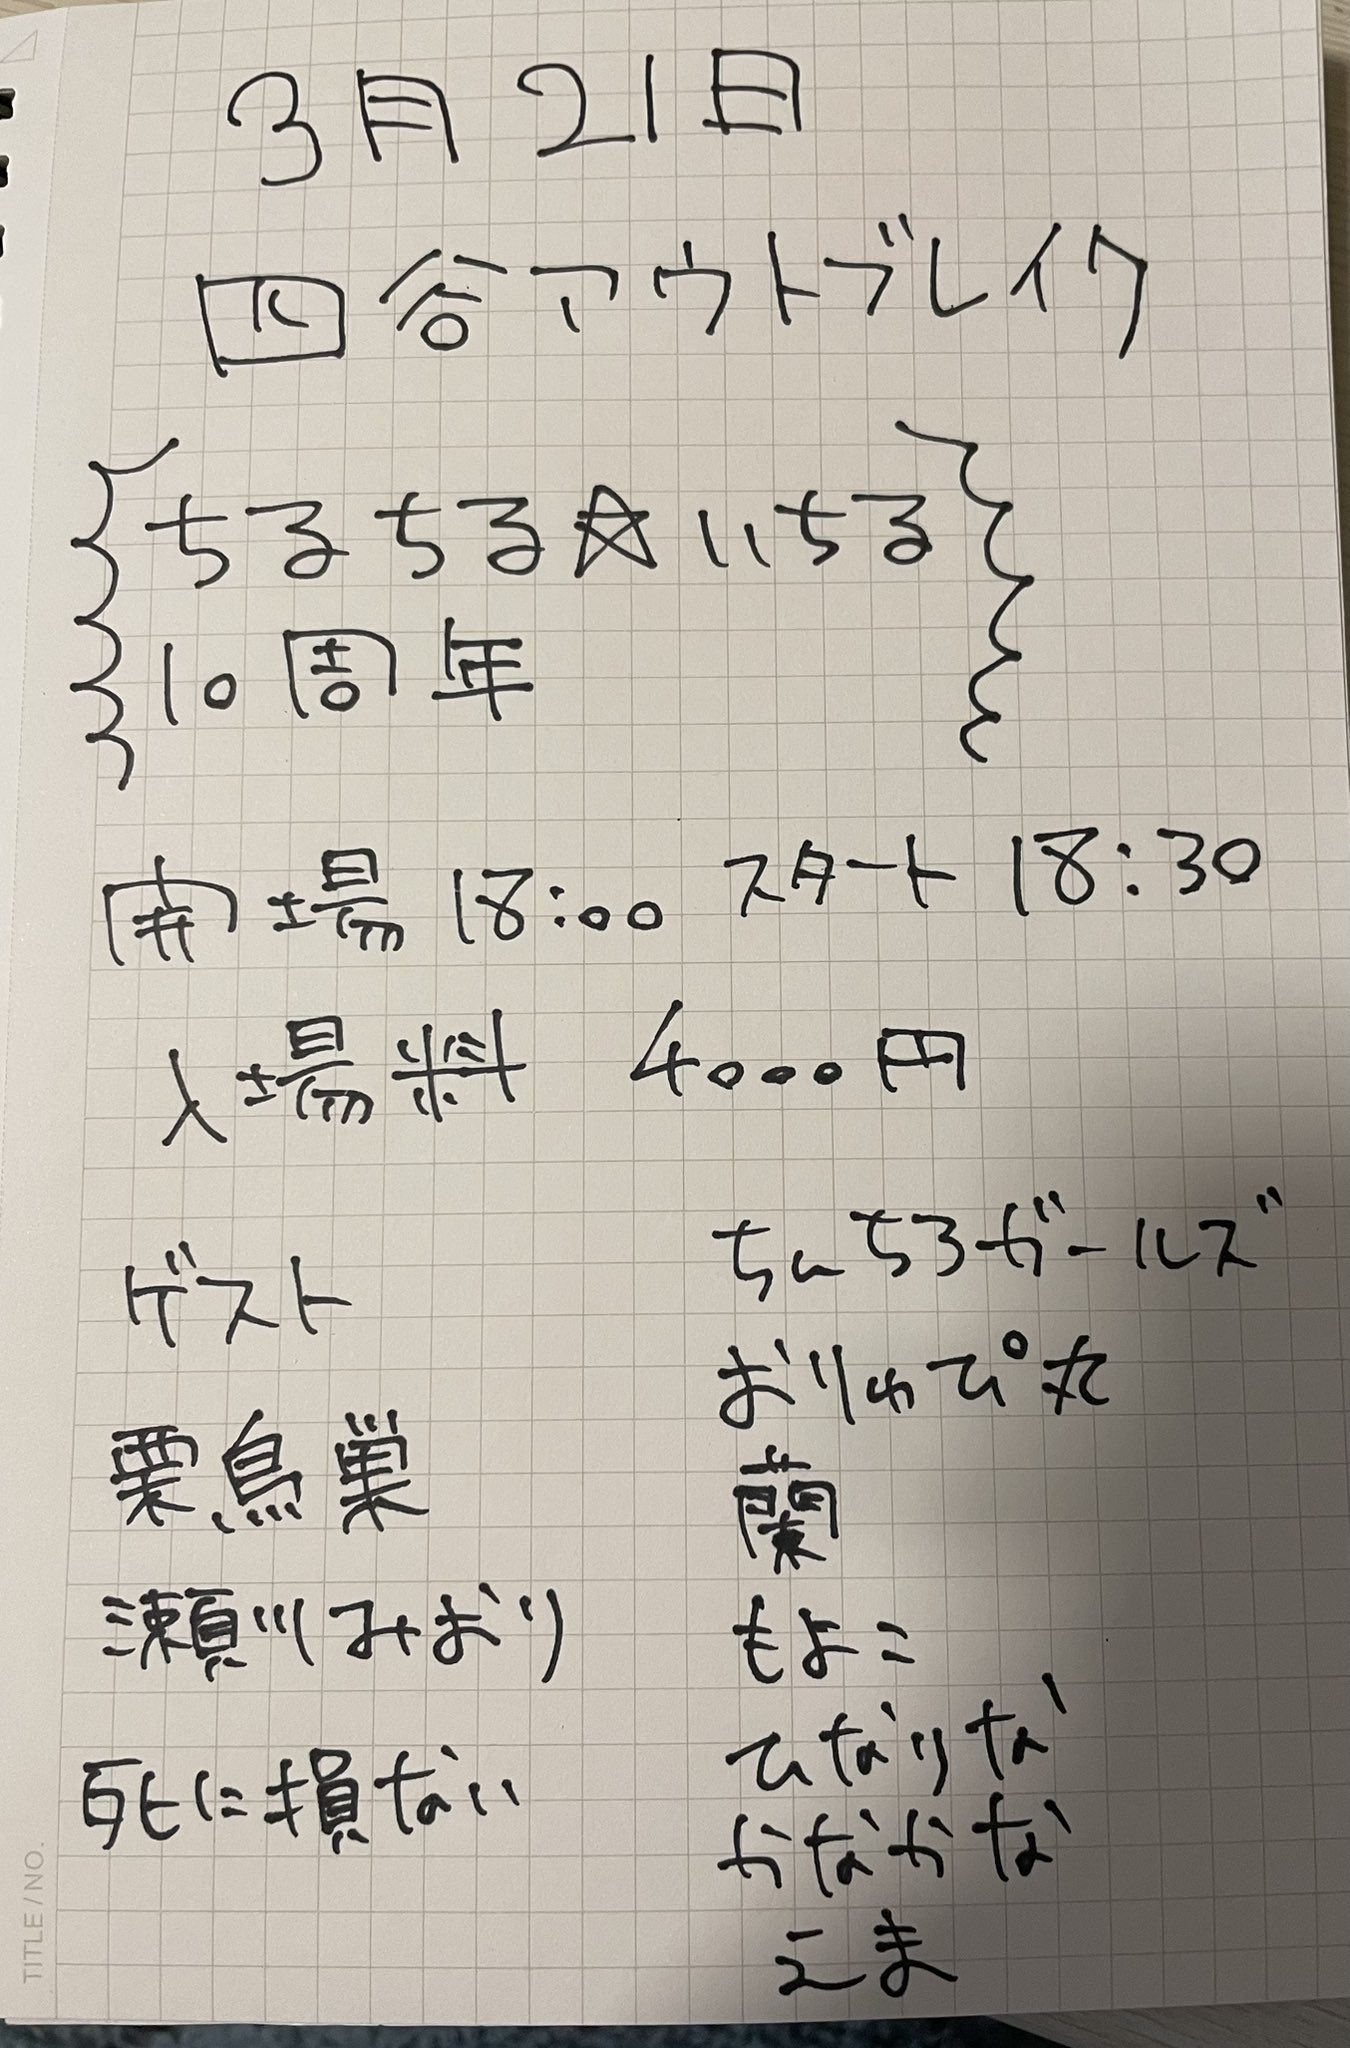 3月21日
四谷アウトブレイク
ちるちる☆いちる
10周年
開場 18:00 スタート 18:30
入場料 4000円
ゲスト
栗鳥巣
瀬川みおり
死に損ない
ちんちろガールズ
おりゅぴ丸
蘭
もよこ
ひなりな
かなかな
えま
TITLE / NO.